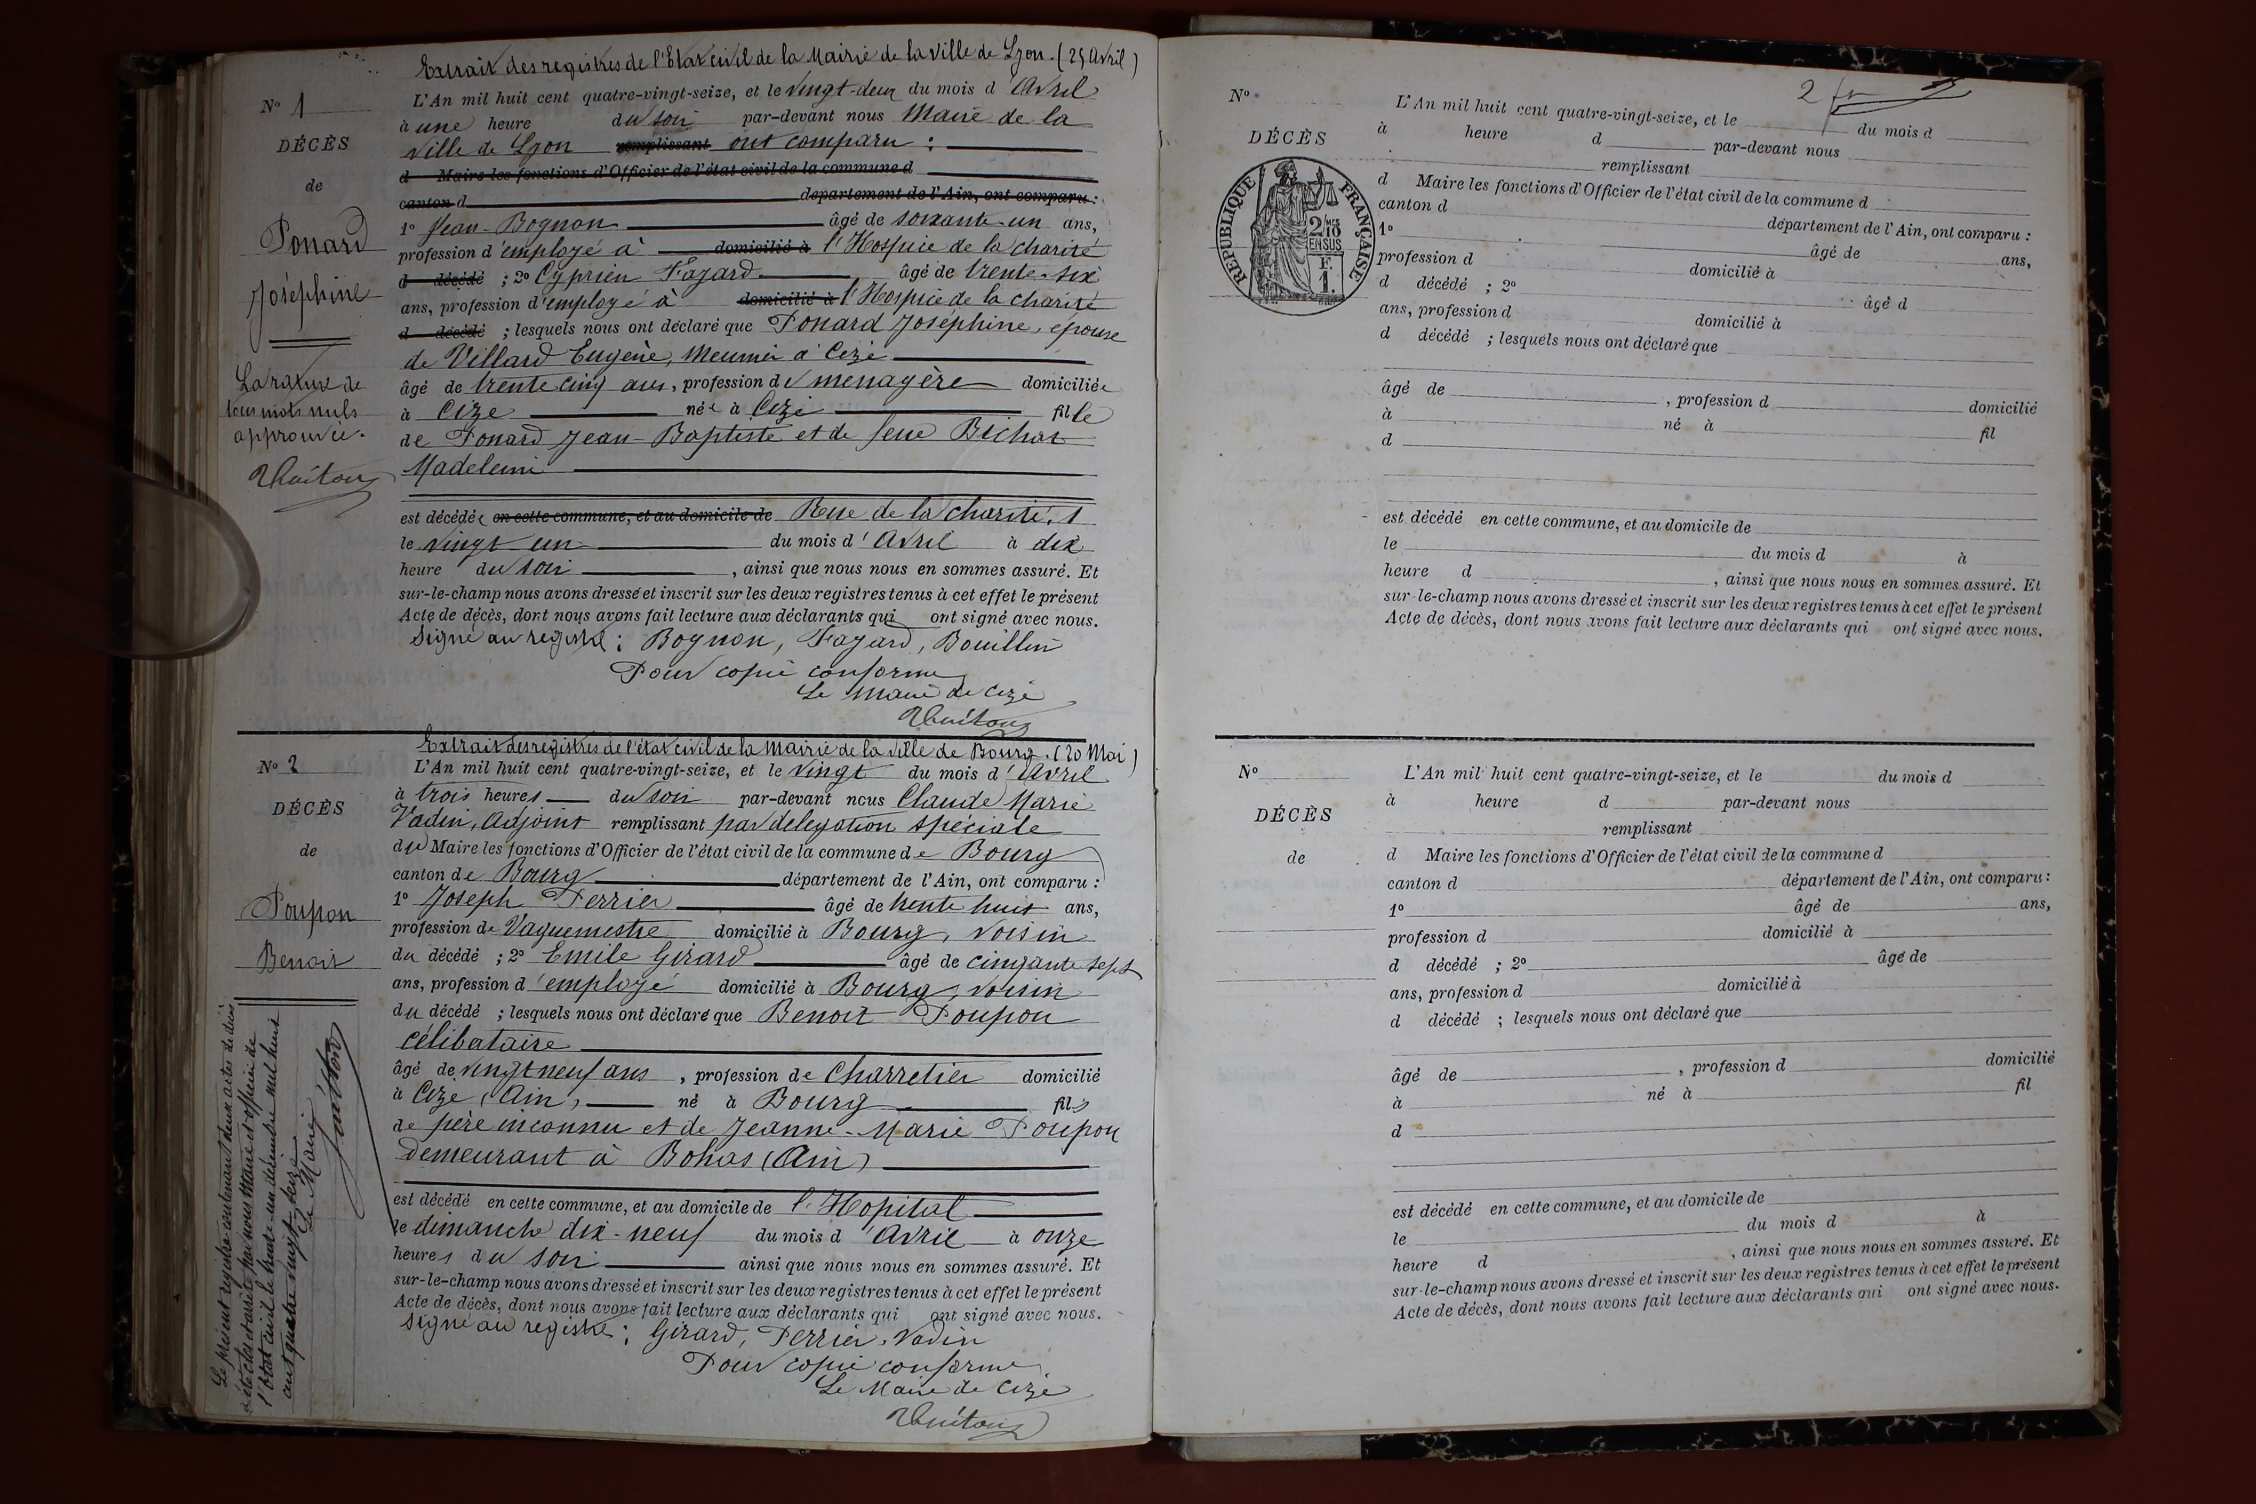 Extrait des registres de l'Etat civil de la Mairie de la ville de Lyon. (25 Avril)
N° 1
DÉCÈS
de
Ponard
Joséphine
La rature de
tous mots nuls
approuvée.
L'An mil huit cent quatre-vingt-seize, et le vingt-deux du mois d'Avril
à une heure du soir par-devant nous Maire de la
ville de Lyon remplissant ont comparu :
d Maire les fonctions d'Officier de l'état civil de la commune d
canton d département de l'Ain, ont comparu :
1° Jean Bognon âgé de soixante-un ans,
profession d'employé à domicilié à l'Hospice de la charité
d décédé ; 2° Cyprien Fayard âgé de trente-six
ans, profession d'employé à domicilié à l'Hospice de la charité
d décédé ; lesquels nous ont déclaré que Ponard Joséphine, épouse
de Villard Eugène, Meunier à Cize
âgé de trente cinq ans, profession de menagère domiciliée
à Cize née à Cize fille
de Ponard Jean-Baptiste et de feue Bichat
Madeleine
est décédée en cette commune, et au domicile de Rue de la charité, 1
le vingt un du mois d'Avril à dix
heure du soir , ainsi que nous nous en sommes assuré. Et
sur-le-champ nous avons dressé et inscrit sur les deux registres tenus à cet effet le présent
Acte de décès, dont nous avons fait lecture aux déclarants qui ont signé avec nous.
Signé au registre : Bognon, Fayard, Bouillin
Pour copie conforme
Le Maire de Cize
Extrait des registres de l'état civil de la Mairie de la ville de Bourg. (20 Mai)
N° 2
DÉCÈS
de
Poupon
Benoit
L'An mil huit cent quatre-vingt-seize, et le vingt du mois d'Avril
à trois heures du soir par-devant nous Claude Marie
Vadin, Adjoint remplissant par délégation spéciale
du Maire les fonctions d'Officier de l'état civil de la commune de Bourg
canton de Bourg département de l'Ain, ont comparu :
1° Joseph Perrier âgé de trente huit ans,
profession de Vaguemestre domicilié à Bourg, voisin
du décédé ; 2° Emile Girard âgé de cinquante sept
ans, profession d'employé domicilié à Bourg, voisin
du décédé ; lesquels nous ont déclaré que Benoit Poupon
célibataire
âgé de vingt neuf ans , profession de Charretier domicilié
à Cize (Ain) né à Bourg fils
de père inconnu et de Jeanne-Marie Poupon
demeurant à Bohas (Ain)
est décédé en cette commune, et au domicile de l'Hopital
le dimanche dix-neuf du mois d'Avril à onze
heures du soir ainsi que nous nous en sommes assuré. Et
sur-le-champ nous avons dressé et inscrit sur les deux registres tenus à cet effet le présent
Acte de décès, dont nous avons fait lecture aux déclarants qui ont signé avec nous.
Signé au registre : Girard, Perrier, Vadin
Pour copie conforme
Le Maire de Cize
Le présent registre contenant deux actes de décès
a été clos et arrêté par nous Maire et officier de
l'état civil le trente-un décembre mil huit
cent quatre vingt seize
Le Maire
2
N°
DÉCÈS
RÉPUBLIQUE FRANÇAISE
2/10
EN SUS
F.
1.
L'An mil huit cent quatre-vingt-seize, et le du mois d
à heure d par-devant nous
remplissant
d Maire les fonctions d'Officier de l'état civil de la commune d
canton d département de l'Ain, ont comparu :
1° âgé de ans,
profession d domicilié à
d décédé ; 2° âgé d
ans, profession d domicilié à
d décédé ; lesquels nous ont déclaré que
âgé de , profession d domicilié
à né à fil
d
est décédé en cette commune, et au domicile de
le du mois d à
heure d , ainsi que nous nous en sommes assuré. Et
sur-le-champ nous avons dressé et inscrit sur les deux registres tenus à cet effet le présent
Acte de décès, dont nous avons fait lecture aux déclarants qui ont signé avec nous.
N°
DÉCÈS
de
L'An mil huit cent quatre-vingt-seize, et le du mois d
à heure d par-devant nous
remplissant
d Maire les fonctions d'Officier de l'état civil de la commune d
canton d département de l'Ain, ont comparu :
1° âgé de ans,
profession d domicilié à
d décédé ; 2° âgé de
ans, profession d domicilié à
d décédé ; lesquels nous ont déclaré que
âgé de , profession d domicilié
à né à fil
d
est décédé en cette commune, et au domicile de
le du mois d à
heure d , ainsi que nous nous en sommes assuré. Et
sur-le-champ nous avons dressé et inscrit sur les deux registres tenus à cet effet le présent
Acte de décès, dont nous avons fait lecture aux déclarants qui ont signé avec nous.